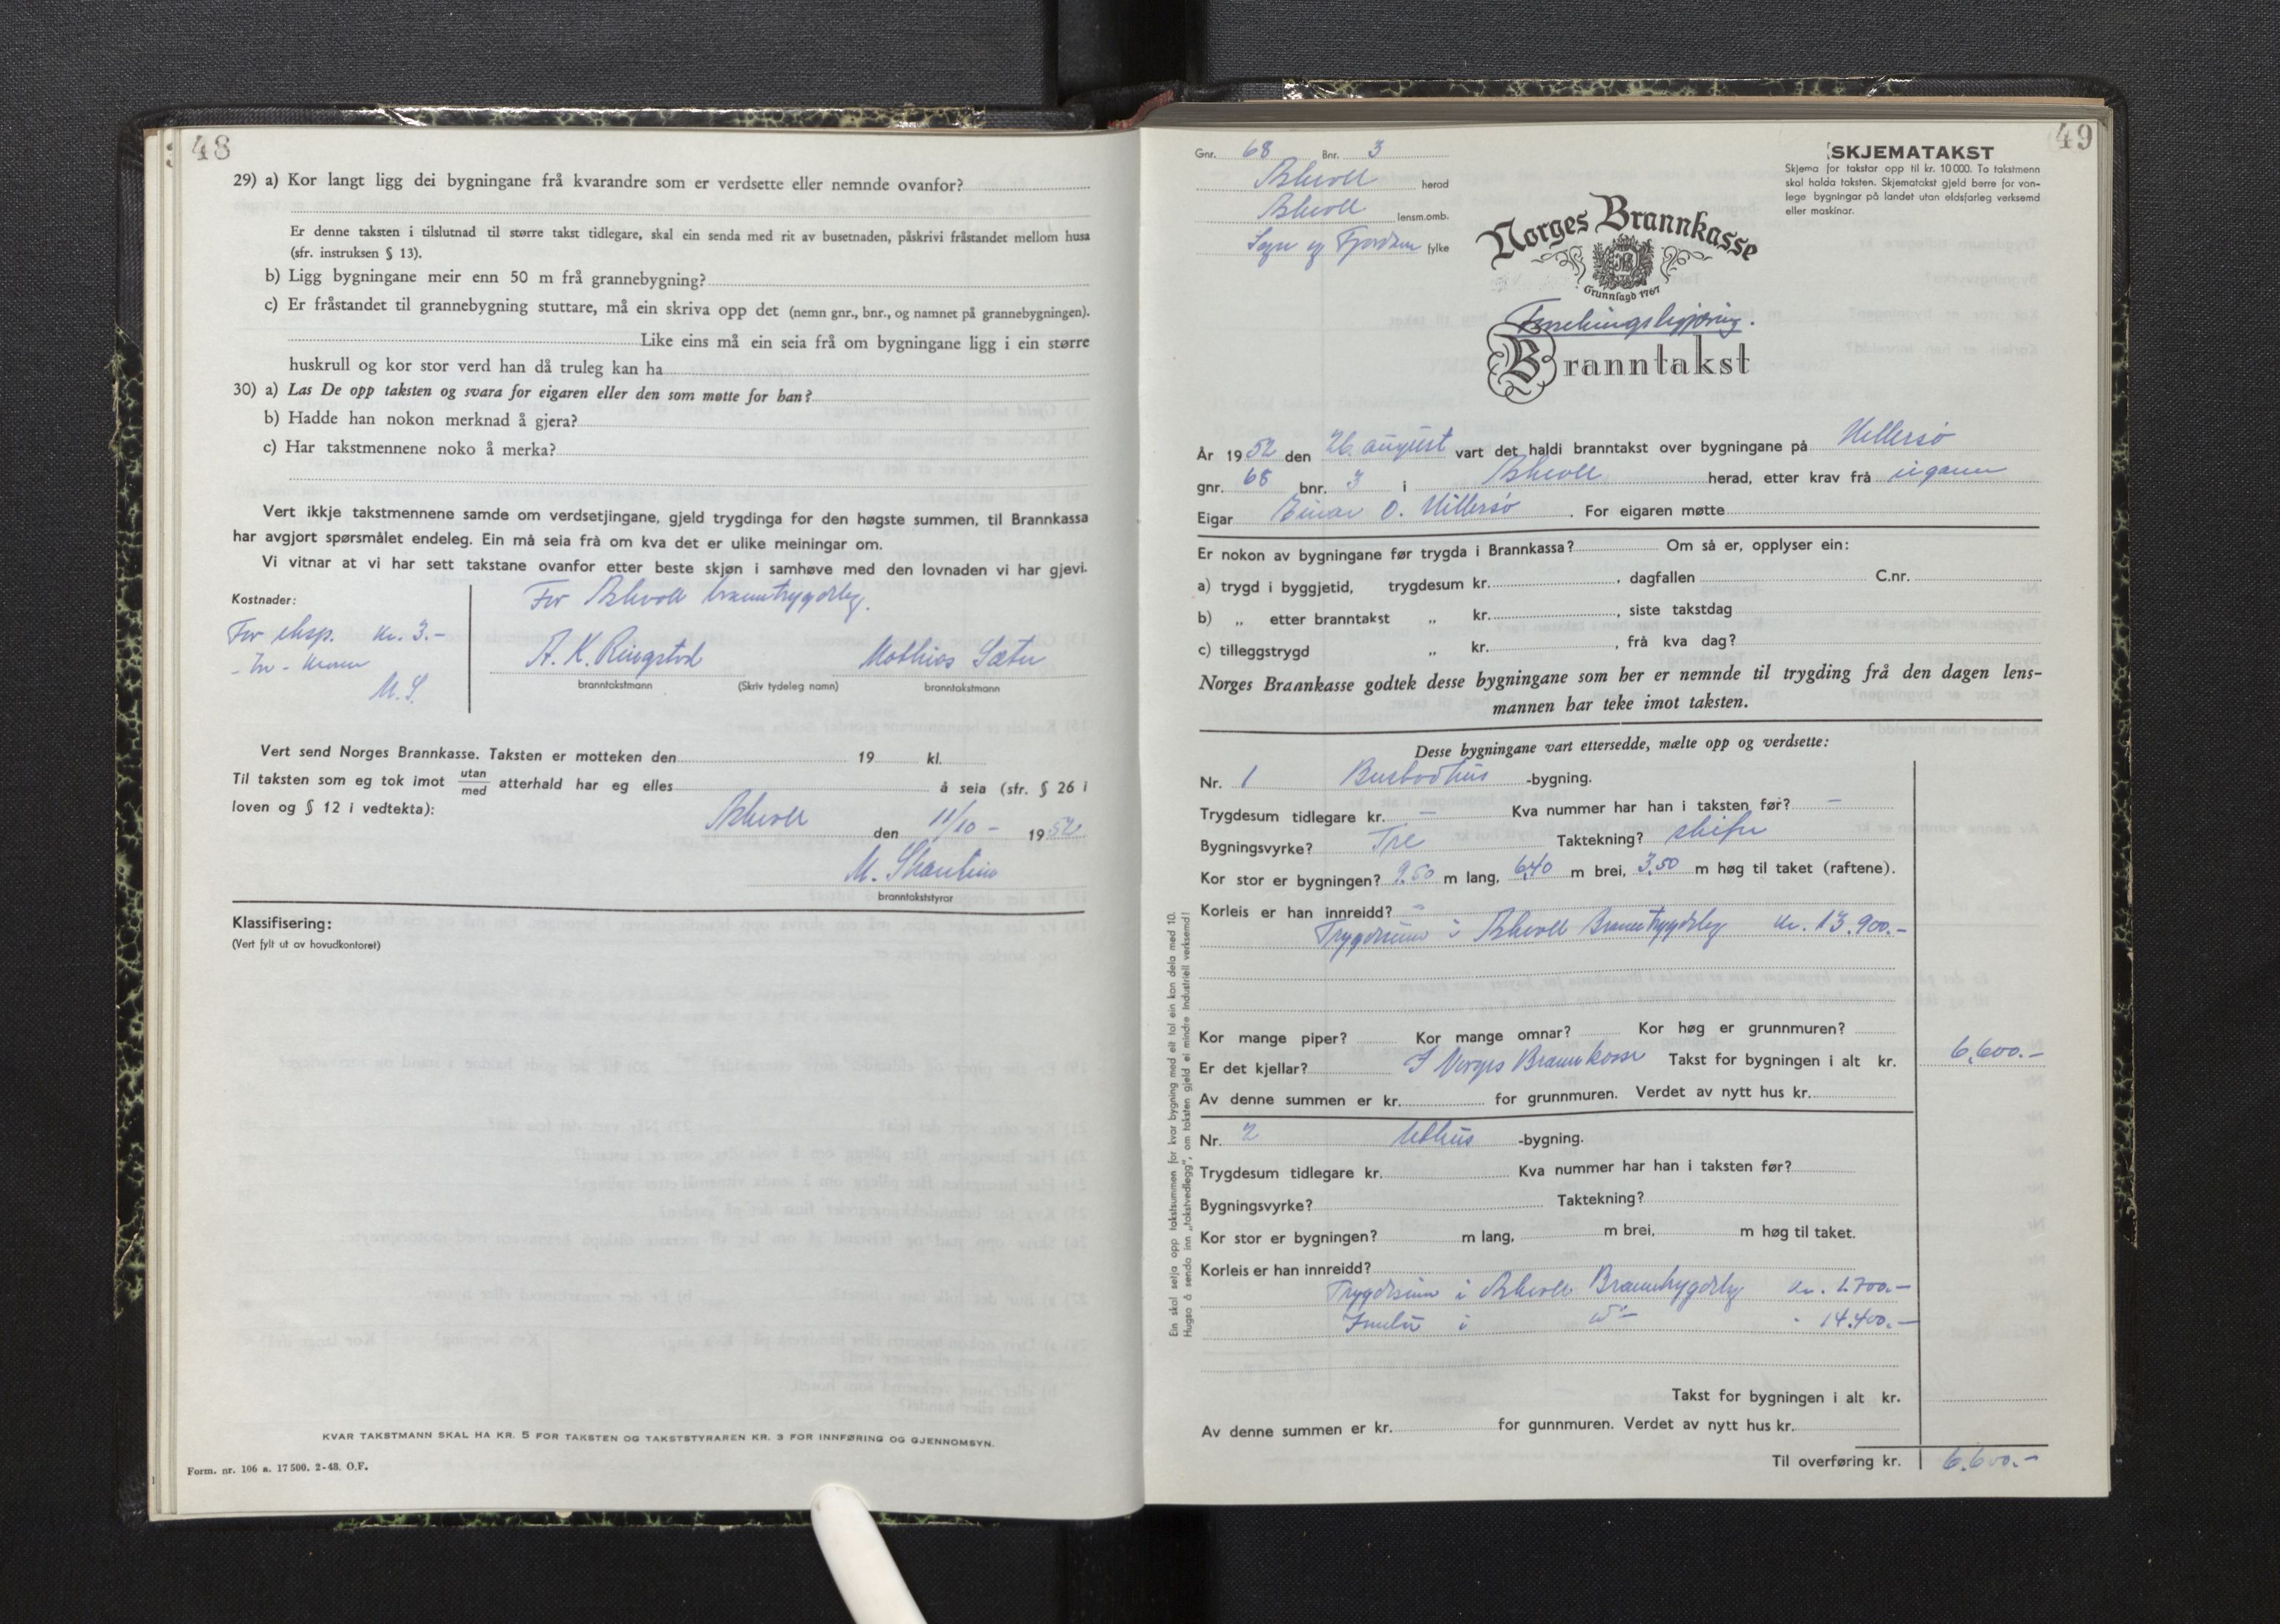 48
29) a) Kor langt ligg dei bygningane frå kvarandre som er verdsette eller nemnde ovanfor?
Er denne taksten i tilslutnad til større takst tidlegare, skal ein senda med rit av busetnaden, påskrivi fråstandet mellom husa
(sfr. instruksen § 13).
b) Ligg bygningane meir enn 50 m frå grannebygning?
c) Er fråstandet til grannebygning stuttare, må ein skriva opp det (nemn gnr., bnr., og namnet på grannebygningen).
Like eins må ein seia frå om bygningane ligg i ein større
huskrull og kor stor verd han då truleg kan ha
30) a) Las De opp taksten og svara for eigaren eller den som møtte for han?
b) Hadde han nokon merknad å gjera?
c) Har takstmennene noko å merka?
Vert ikkje takstmennene samde om verdsetjingane, gjeld trygdinga for den høgste summen, til Brannkassa
har avgjort spørsmålet endeleg. Ein må seia frå om kva det er ulike meiningar om.
Vi vitnar at vi har sett takstane ovanfor etter beste skjøn i samhøve med den lovnaden vi har gjevi.
Kostnader:
For Askvoll branntrygdelag.
For eksp. kr. 3.-
- Tre - kroner
M. S.
A. K. Ringstad
Mathias Sæter
branntakstmann (Skriv tydeleg namn) branntakstmann
Vert send Norges Brannkasse. Taksten er motteken den 19 kl.
Til taksten som eg tok imot utan/med atterhald har eg elles å seia (sfr. § 26 i
loven og § 12 i vedtekta):
Askvoll den 11/10 - 1952
branntakststyrar
Klassifisering:
(Vert fylt ut av hovudkontoret)
KVAR TAKSTMANN SKAL HA KR. 5 FOR TAKSTEN OG TAKSTSTYRAREN KR. 3 FOR INNFØRING OG GJENNOMSYN.
Form. nr. 106 a. 17 500. 2-48. O.F.
49
Gnr. 68 Bnr. 3
Askvoll herod
Askvoll lensm.omb.
Sogn og Fjordane fylke
SKJEMATAKST
Skjema for takstar opp til kr. 10 000. To takstmenn
skal halda taksten. Skjematakst gjeld berre for van-
lege bygningar på landet utan eldsfarleg verksemd
eller maskinar.
Norges Brannkasse
Grunnlagd 1767
Branntakst
År 1952 den 26. august vart det haldi branntakst over bygningane på Hellersø
gnr. 68 bnr. 3 i Askvoll herad, etter krav frå eigaren
Eigar Einar O. Hellersø. For eigaren møtte
Er nokon av bygningane før trygda i Brannkassa? Om så er, opplyser ein:
a) trygd i byggjetid, trygdesum kr. , dagfallen C.nr.
b) „ etter branntakst „ kr. , siste takstdag
c) tilleggstrygd „ kr. , frå kva dag?
Norges Brannkasse godtek desse bygningane som her er nemnde til trygding frå den dagen lens-
mannen har teke imot taksten.
Desse bygningane vart ettersedde, mælte opp og verdsette:
Nr. 1 Busbodhus -bygning.
Trygdesum tidlegare kr. — Kva nummer har han i taksten før? —
Bygningsvyrke? Tre Taktekning? skifer
Kor stor er bygningen? 9.50 m lang, 6,40 m brei, 3,50 m høg til taket (raftene).
Korleis er han innreidd?
Trygdesum i Askvoll Branntrygdelag kr. 13.900.-
Kor mange piper? Kor mange omnar? Kor høg er grunnmuren?
Er det kjellar? I Norges Brannkasse Takst for bygningen i alt kr. 6.600.-
Av denne summen er kr. for grunnmuren. Verdet av nytt hus kr.
Nr. 2 Uthus -bygning.
Trygdesum tidlegare kr. Kva nummer har han i taksten før?
Bygningsvyrke? Taktekning?
Kor stor er bygningen? m lang, m brei, m høg til taket.
Korleis er han innreidd?
Trygdesum i Askvoll Branntrygdelag kr. 1.700.-
i 14.400.-
Takst for bygningen i alt kr.
Av denne summen er kr. for gunnmuren. Verdet av nytt hus kr.
Til overføring kr. 6.600.-
Ein skal setja opp takstsummen for kvar bygning med eit tal ein kan dela med 10.
Hugso å senda inn „takstvedlegg", om taksten gjeld ei mindre Industriell verksemd!